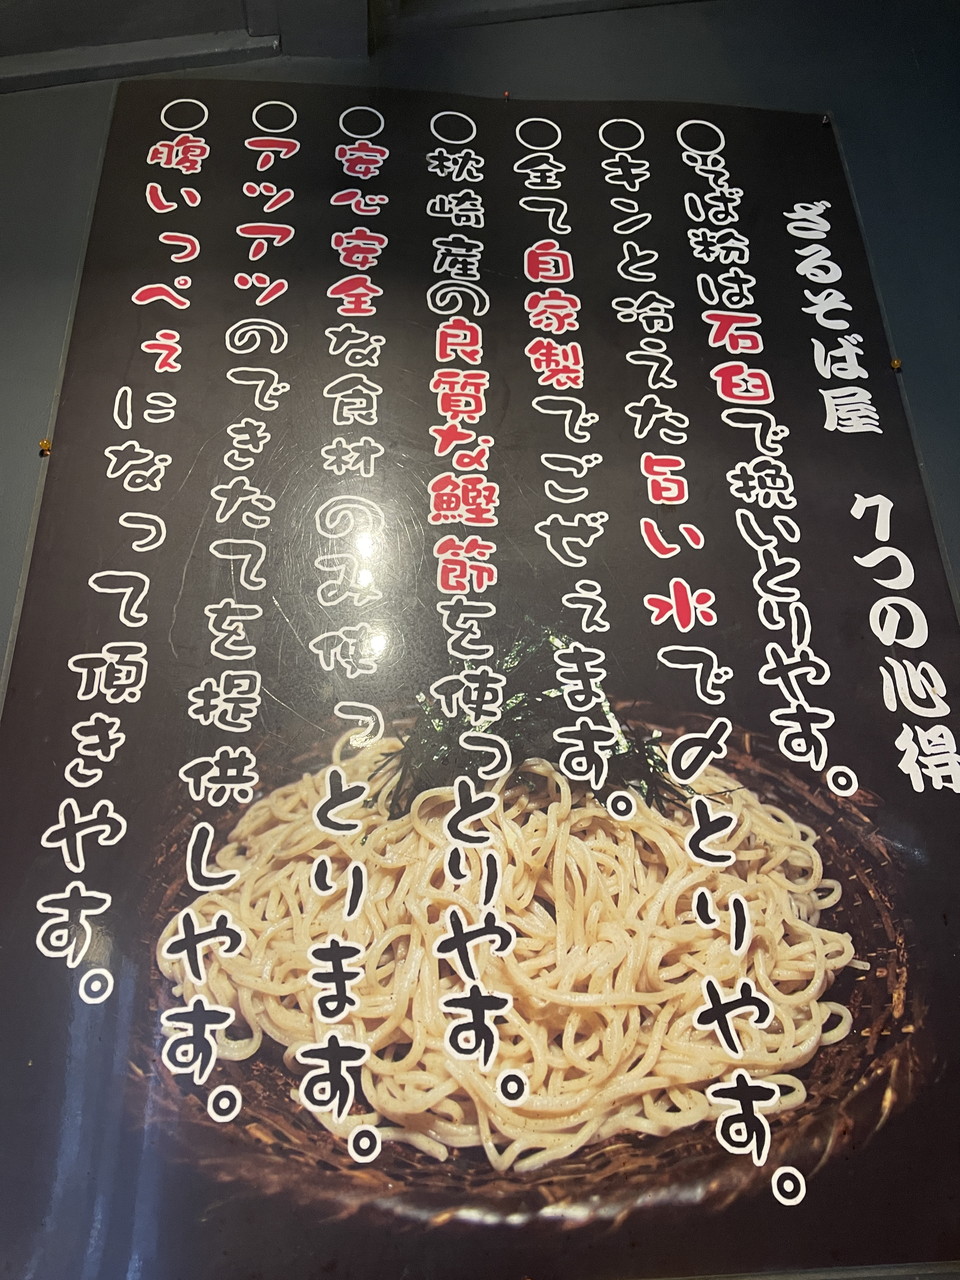 ざるそば屋 7つの心得
○そば粉は石臼で挽いとりやす。
○キンと冷えた旨い水で〆とりやす。
○全て自家製でごぜぇます。
○枕崎産の良質な鰹節を使っとりやす。
○安心安全な食材のみ使っとります。
○アツアツのできたてを提供しやす。
○腹いっぺぇになって頂きやす。